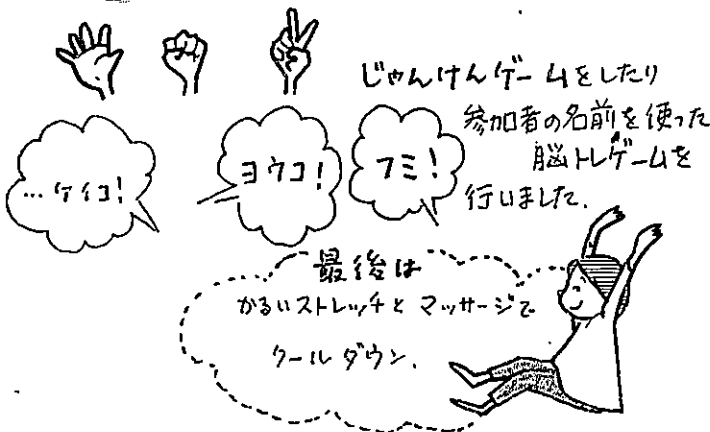 じゃんけんゲームをしたり
参加者の名前を使った
脳トレゲームを
行いました.
…ケイコ!
ヨウコ!
フミ!
最後は
かるいストレッチと マッサージで
クールダウン.